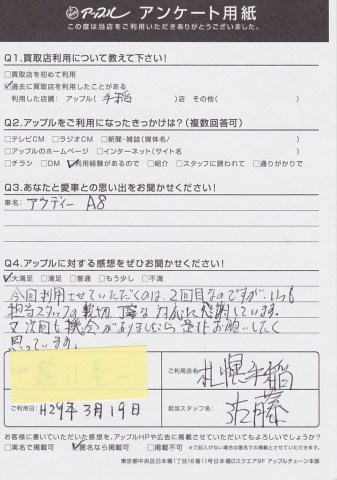 アップル アンケート用紙
この度は当店をご利用いただきありがとうございました。
Q1.買取店利用について教えて下さい!
□買取店を初めて利用
☑過去に買取店を利用したことがある
利用した店舗: アップル( 手稲 )店 その他( )
Q2.アップルをご利用になったきっかけは?(複数回答可)
□テレビCM □ラジオCM □新聞・雑誌(媒体名/ )
□アップルのホームページ □インターネット(サイト名 )
□チラシ □DM ☑利用経験があるので □紹介 □スタッフに誘われて □通りがかりで
Q3.あなたと愛車との思い出をお聞かせください!
車名: アウディー A8
Q4.アップルに対する感想をぜひお聞かせください!
☑大満足 □満足 □普通 □もう少し □不満
今回利用させていただくのは、2回目なのですが、いつも
担当スタッフの親切丁寧な対応に感謝しています。
又次回も機会がありましたら是非お願いしたく
思っています。
ご利用店名 札幌手稲
ご利用日: H29年3月19日
担当スタッフ名: 佐藤
お客様に書いていただいた感想を、アップルHPや広告に掲載させていただいてもよろしいでしょうか?
□実名で掲載可 ☑匿名なら掲載可 □掲載不可 ※ご記入がない場合は匿名での掲載とさせていただきます。
東京都中央区日本橋1丁目16番11号日本橋Dスクエア9F アップルチェーン本部